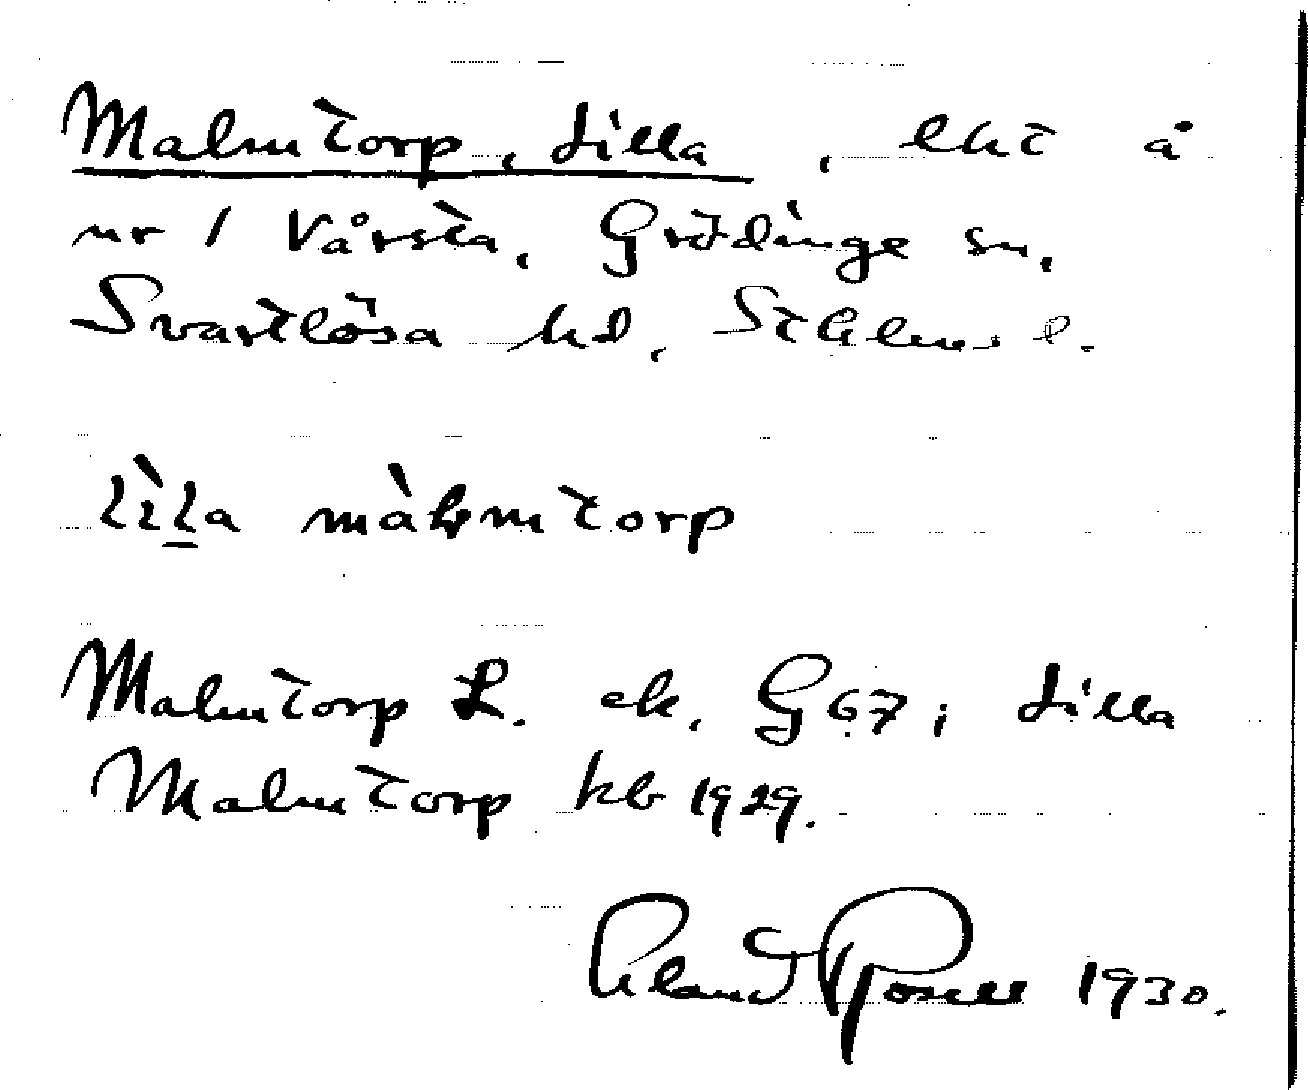 Malmtorp, Lilla, lht å
nr 1 Vårsta, Grödinge sn,
Svartlösa hd, Sthlms l.
lìla màlmtorp
Malmtorp L. ek. G67; Lilla
Malmtorp kb 1929.
1930.